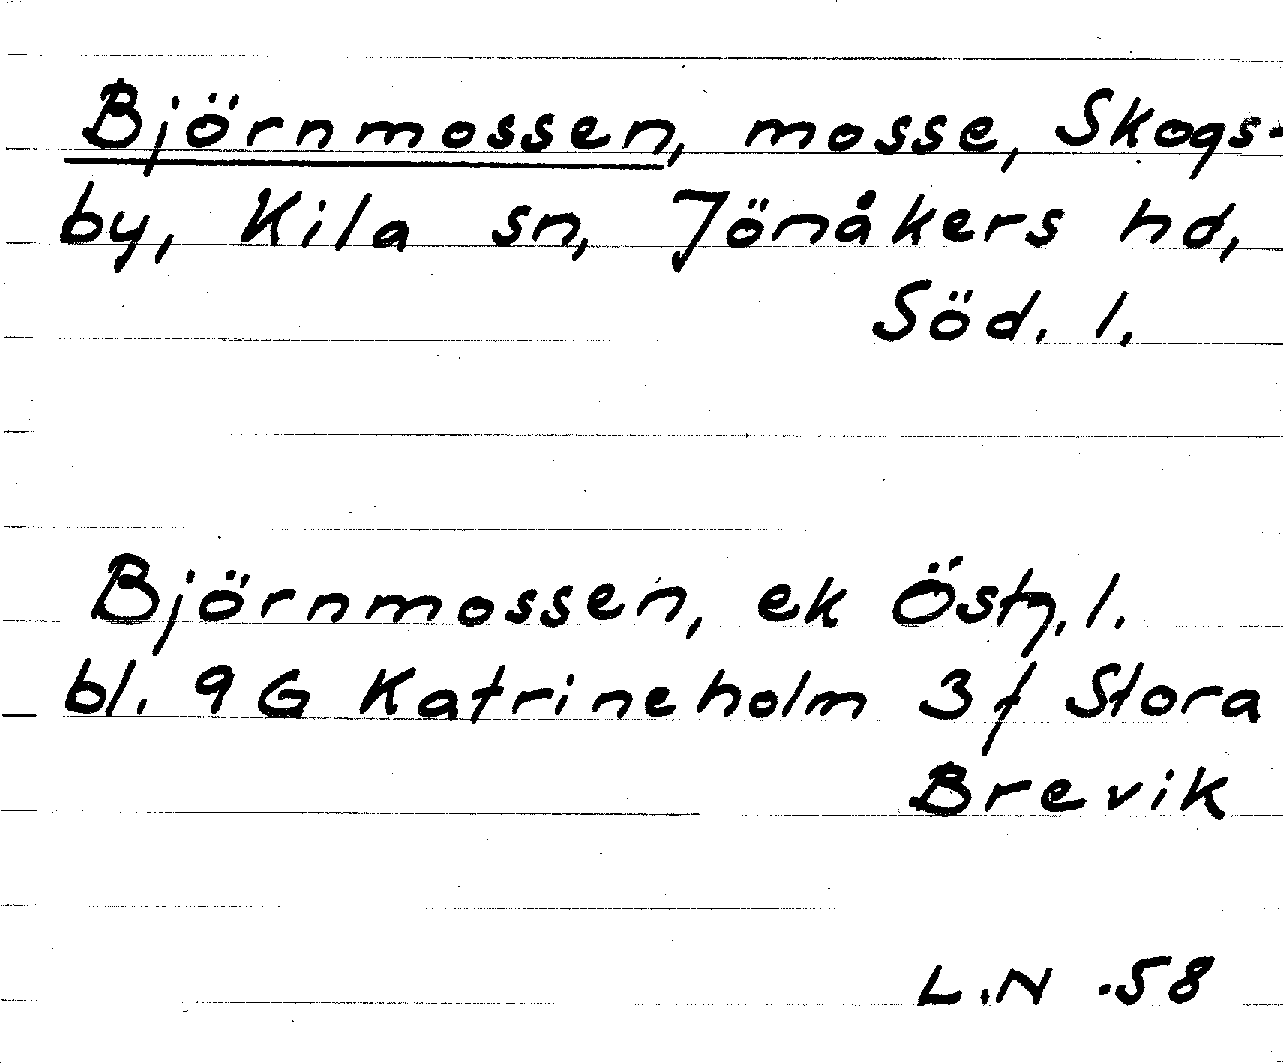 Björnmossen, mosse, Skogs-
by, Kila sn, Jönåkers hd,
Söd. l.
Björnmossen, ek Östg. l.
bl. 9G Katrineholm 3f Stora
Brevik
L.N .58